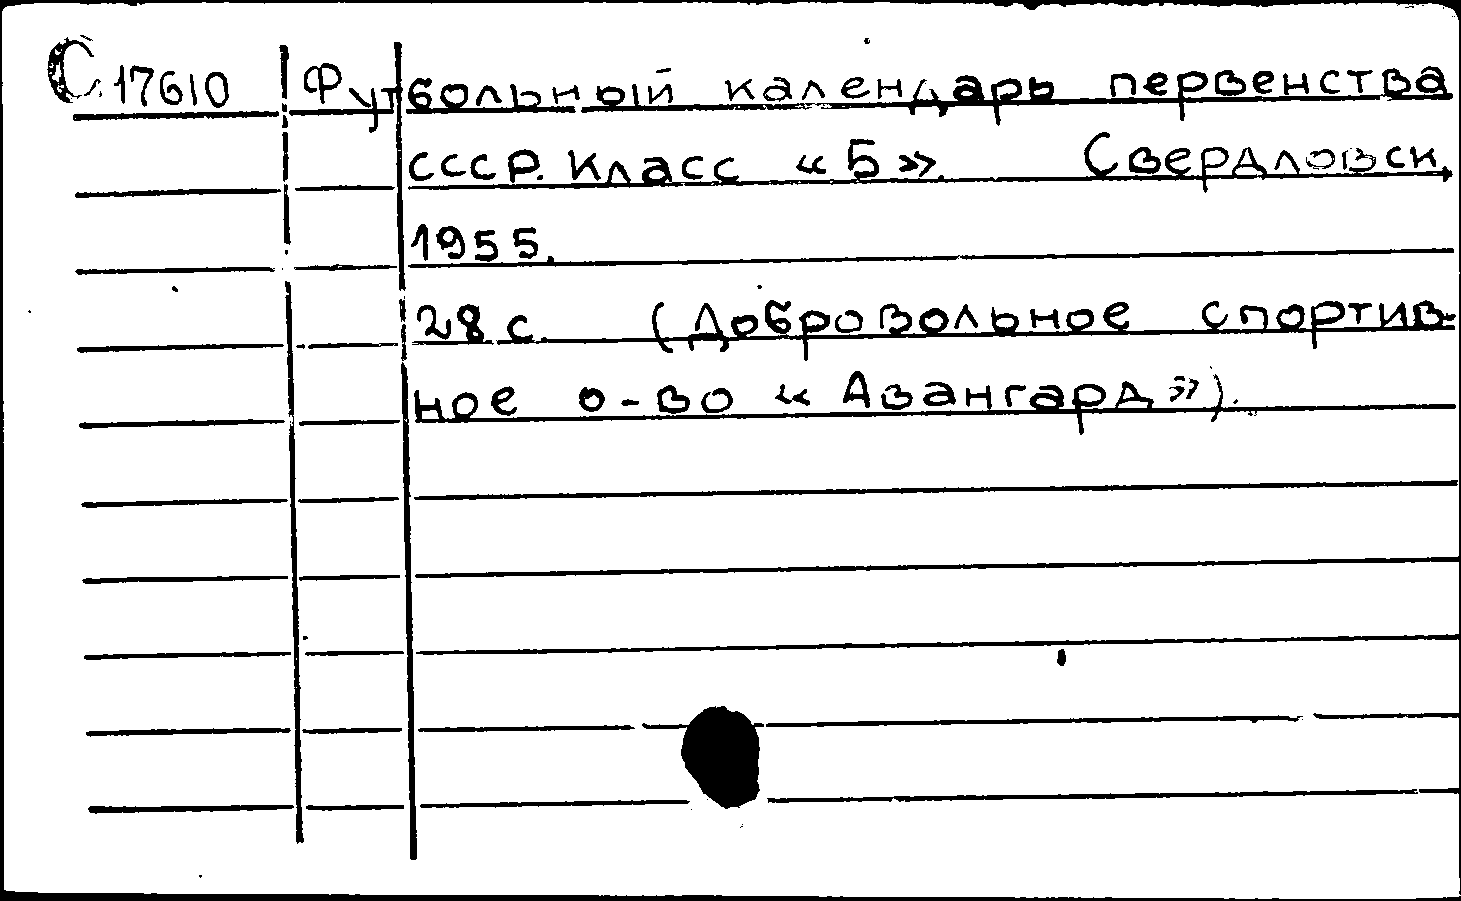 С17610 Футбольный календарь первенства
СССР. Класс «Б». Свердловск,
1955.
28 с. (Добровольное спортив-
ное о-во «Авангард»).